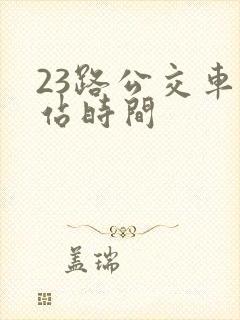 23路公交車
佔時間
盖瑞